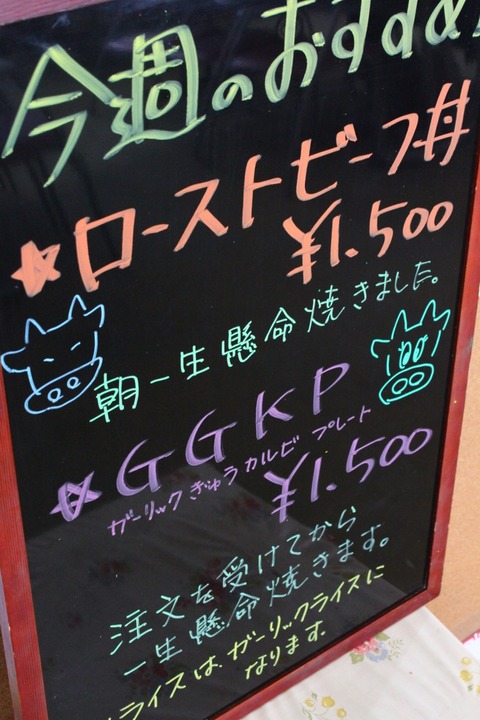 今週のおすすめ
☆ローストビーフ丼
¥1.500
朝一生懸命焼きました。
☆GGKP
ガーリックぎゅうカルビプレート
¥1.500
注文を受けてから
一生懸命焼きます。
ライスは、ガーリックライスに
なります。